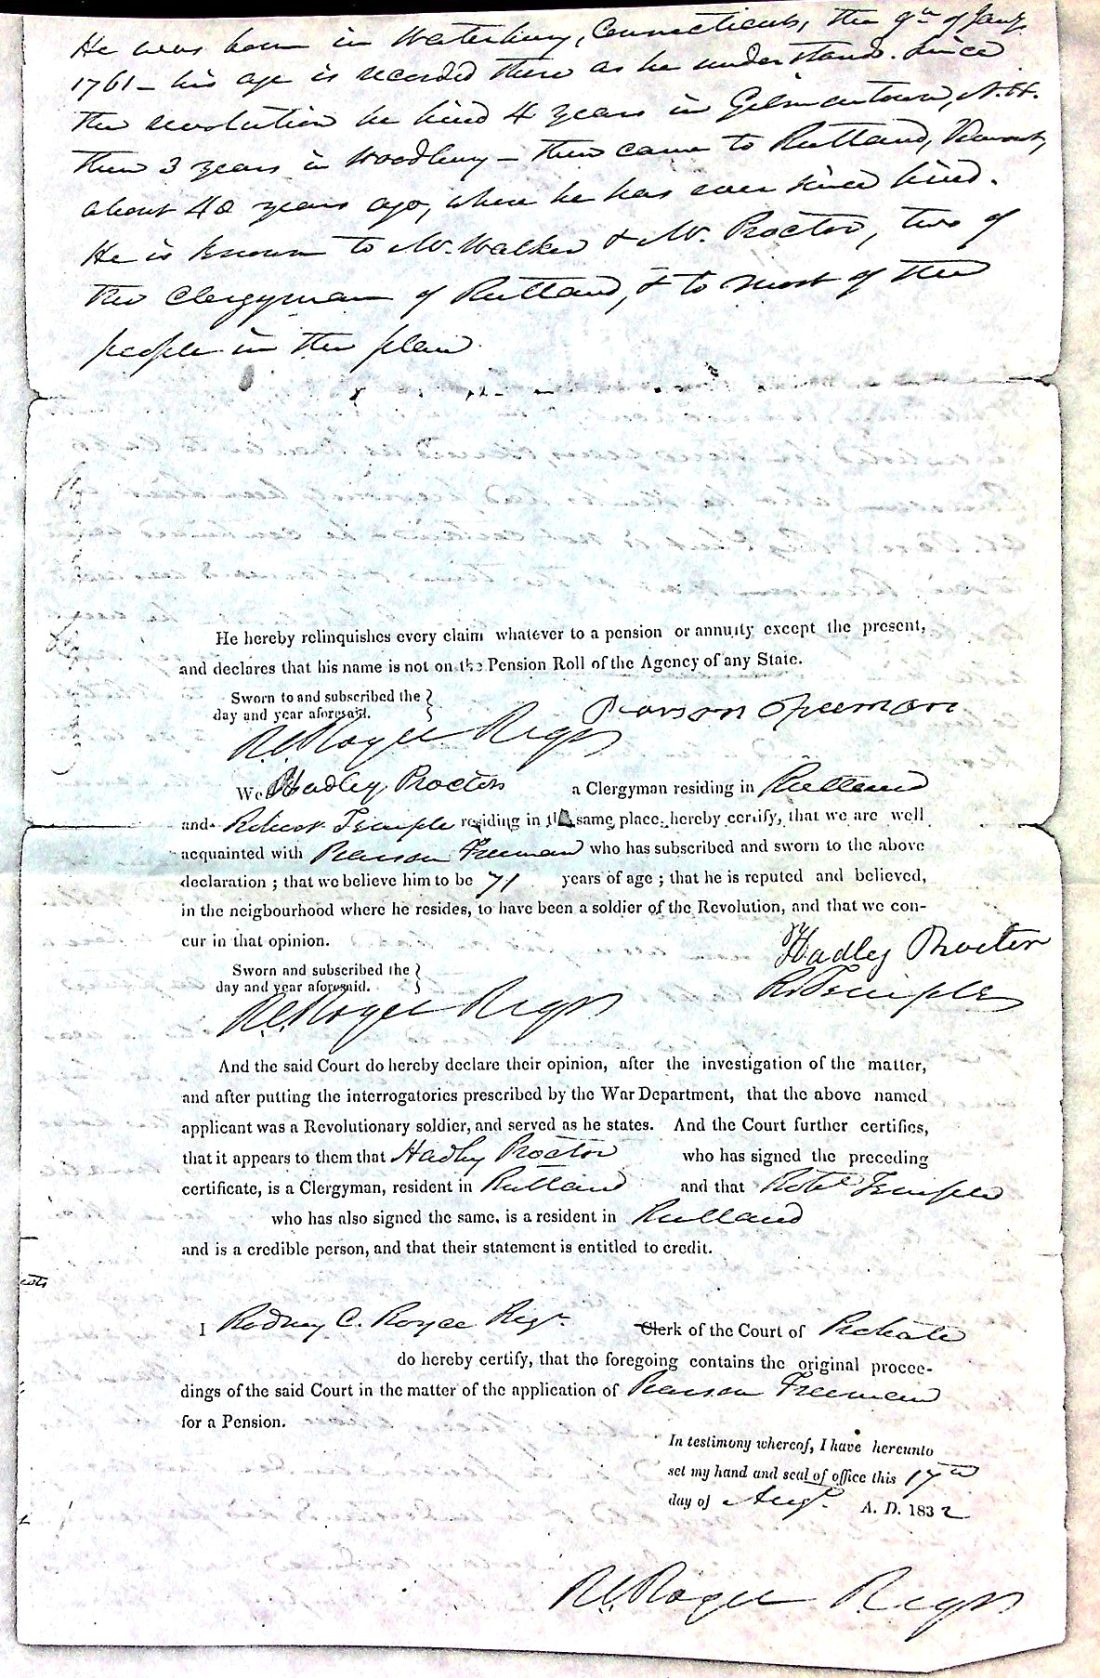 He was born in Waterbury, Connecticut, the 9th of Jany
1761 - his age is recorded there as he understands. Since
the revolution he lived 4 years in Gilmantown, N.H.
then 3 years in Woodbury - then came to Rutland, Vermont,
about 40 years ago, where he has ever since lived.
He is known to Mr. Walker & Mr. Proctor, two of
the Clergyman of Rutland, & to most of the
people in the place
He hereby relinquishes every claim whatever to a pension or annuity except the present,
and declares that his name is not on the Pension Roll of the Agency of any State.
Sworn to and subscribed the
day and year aforesaid.
Pearson Freeman
R.C. Royce Regr
We Hadley Proctor a Clergyman residing in Rutland
and Robert Temple residing in the same place hereby certify, that we are well
acquainted with Pearson Freeman who has subscribed and sworn to the above
declaration ; that we believe him to be 71 years of age ; that he is reputed and believed,
in the neigbourhood where he resides, to have been a soldier of the Revolution, and that we con-
cur in that opinion.
Hadley Proctor
Sworn and subscribed the
day and year aforesaid.
R Temple
R.C. Royce Regr
And the said Court do hereby declare their opinion, after the investigation of the matter,
and after putting the interrogatories prescribed by the War Department, that the above named
applicant was a Revolutionary soldier, and served as he states. And the Court further certifies,
that it appears to them that Hadley Proctor who has signed the preceding
certificate, is a Clergyman, resident in Rutland and that Robt Temple
who has also signed the same, is a resident in Rutland
and is a credible person, and that their statement is entitled to credit.
I Rodney C. Royce Regr Clerk of the Court of Probate
do hereby certify, that the foregoing contains the original procee-
dings of the said Court in the matter of the application of Pearson Freeman
for a Pension.
In testimony whereof, I have hereunto
set my hand and seal of office this 17th
day of Augt A. D. 1832
R.C. Royce Regr